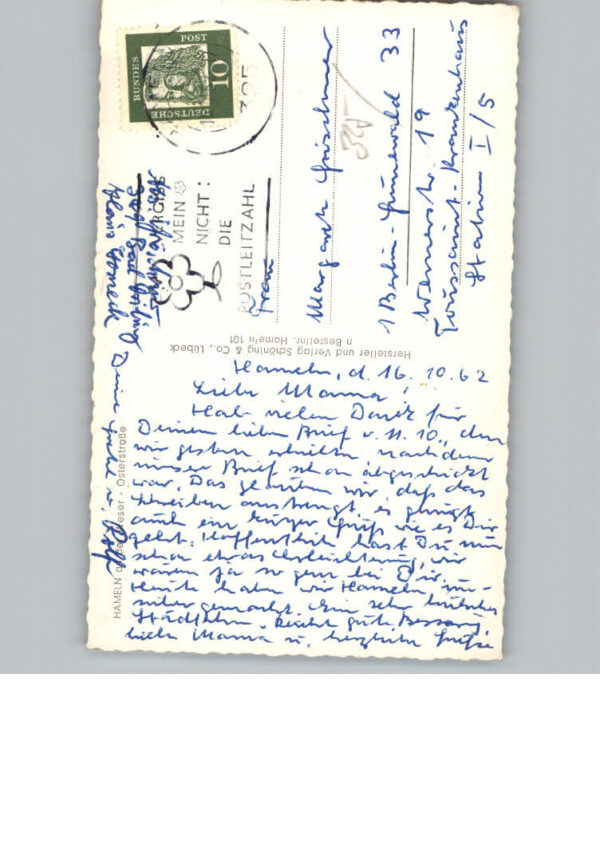 Hameln, d. 16.10.62
Liebe Mamma!
Hab vielen Dank für
Deinen lieben Brief v. 11.10., den
wir gestern erhielten, nachdem
unser Brief schon abgeschickt
war. Das glauben wir, daß das
Schreiben anstrengt, es genügt
auch ein kurzer Gruß wie es Dir
geht. Hoffentlich hast Du nun
schon etwas Erleichterung, wir
wären ja so gern bei Dir.
Heute haben wir Hameln un-
sicher gemacht. Ein sehr hübsches
Städtchen. Recht gute Besserung,
liebe Mamma u. herzliche Grüße
Deine u. Rolf
DEUTSCHE BUNDESPOST
10
325
VERGISS
MEIN
NICHT:
DIE
POSTLEITZAHL
Frau
Margarete
1 Berlin-Grunewald 33
19
Krankenhaus
Station I/5
Hersteller und Verlag Schöning & Co., Lübeck
n Bestellnr. Hame'n 101
HAMELN Weser - Osterstraße